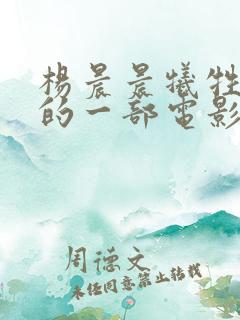 杨晨晨牺牲
的一部电影
周德文
未经同意禁止转载